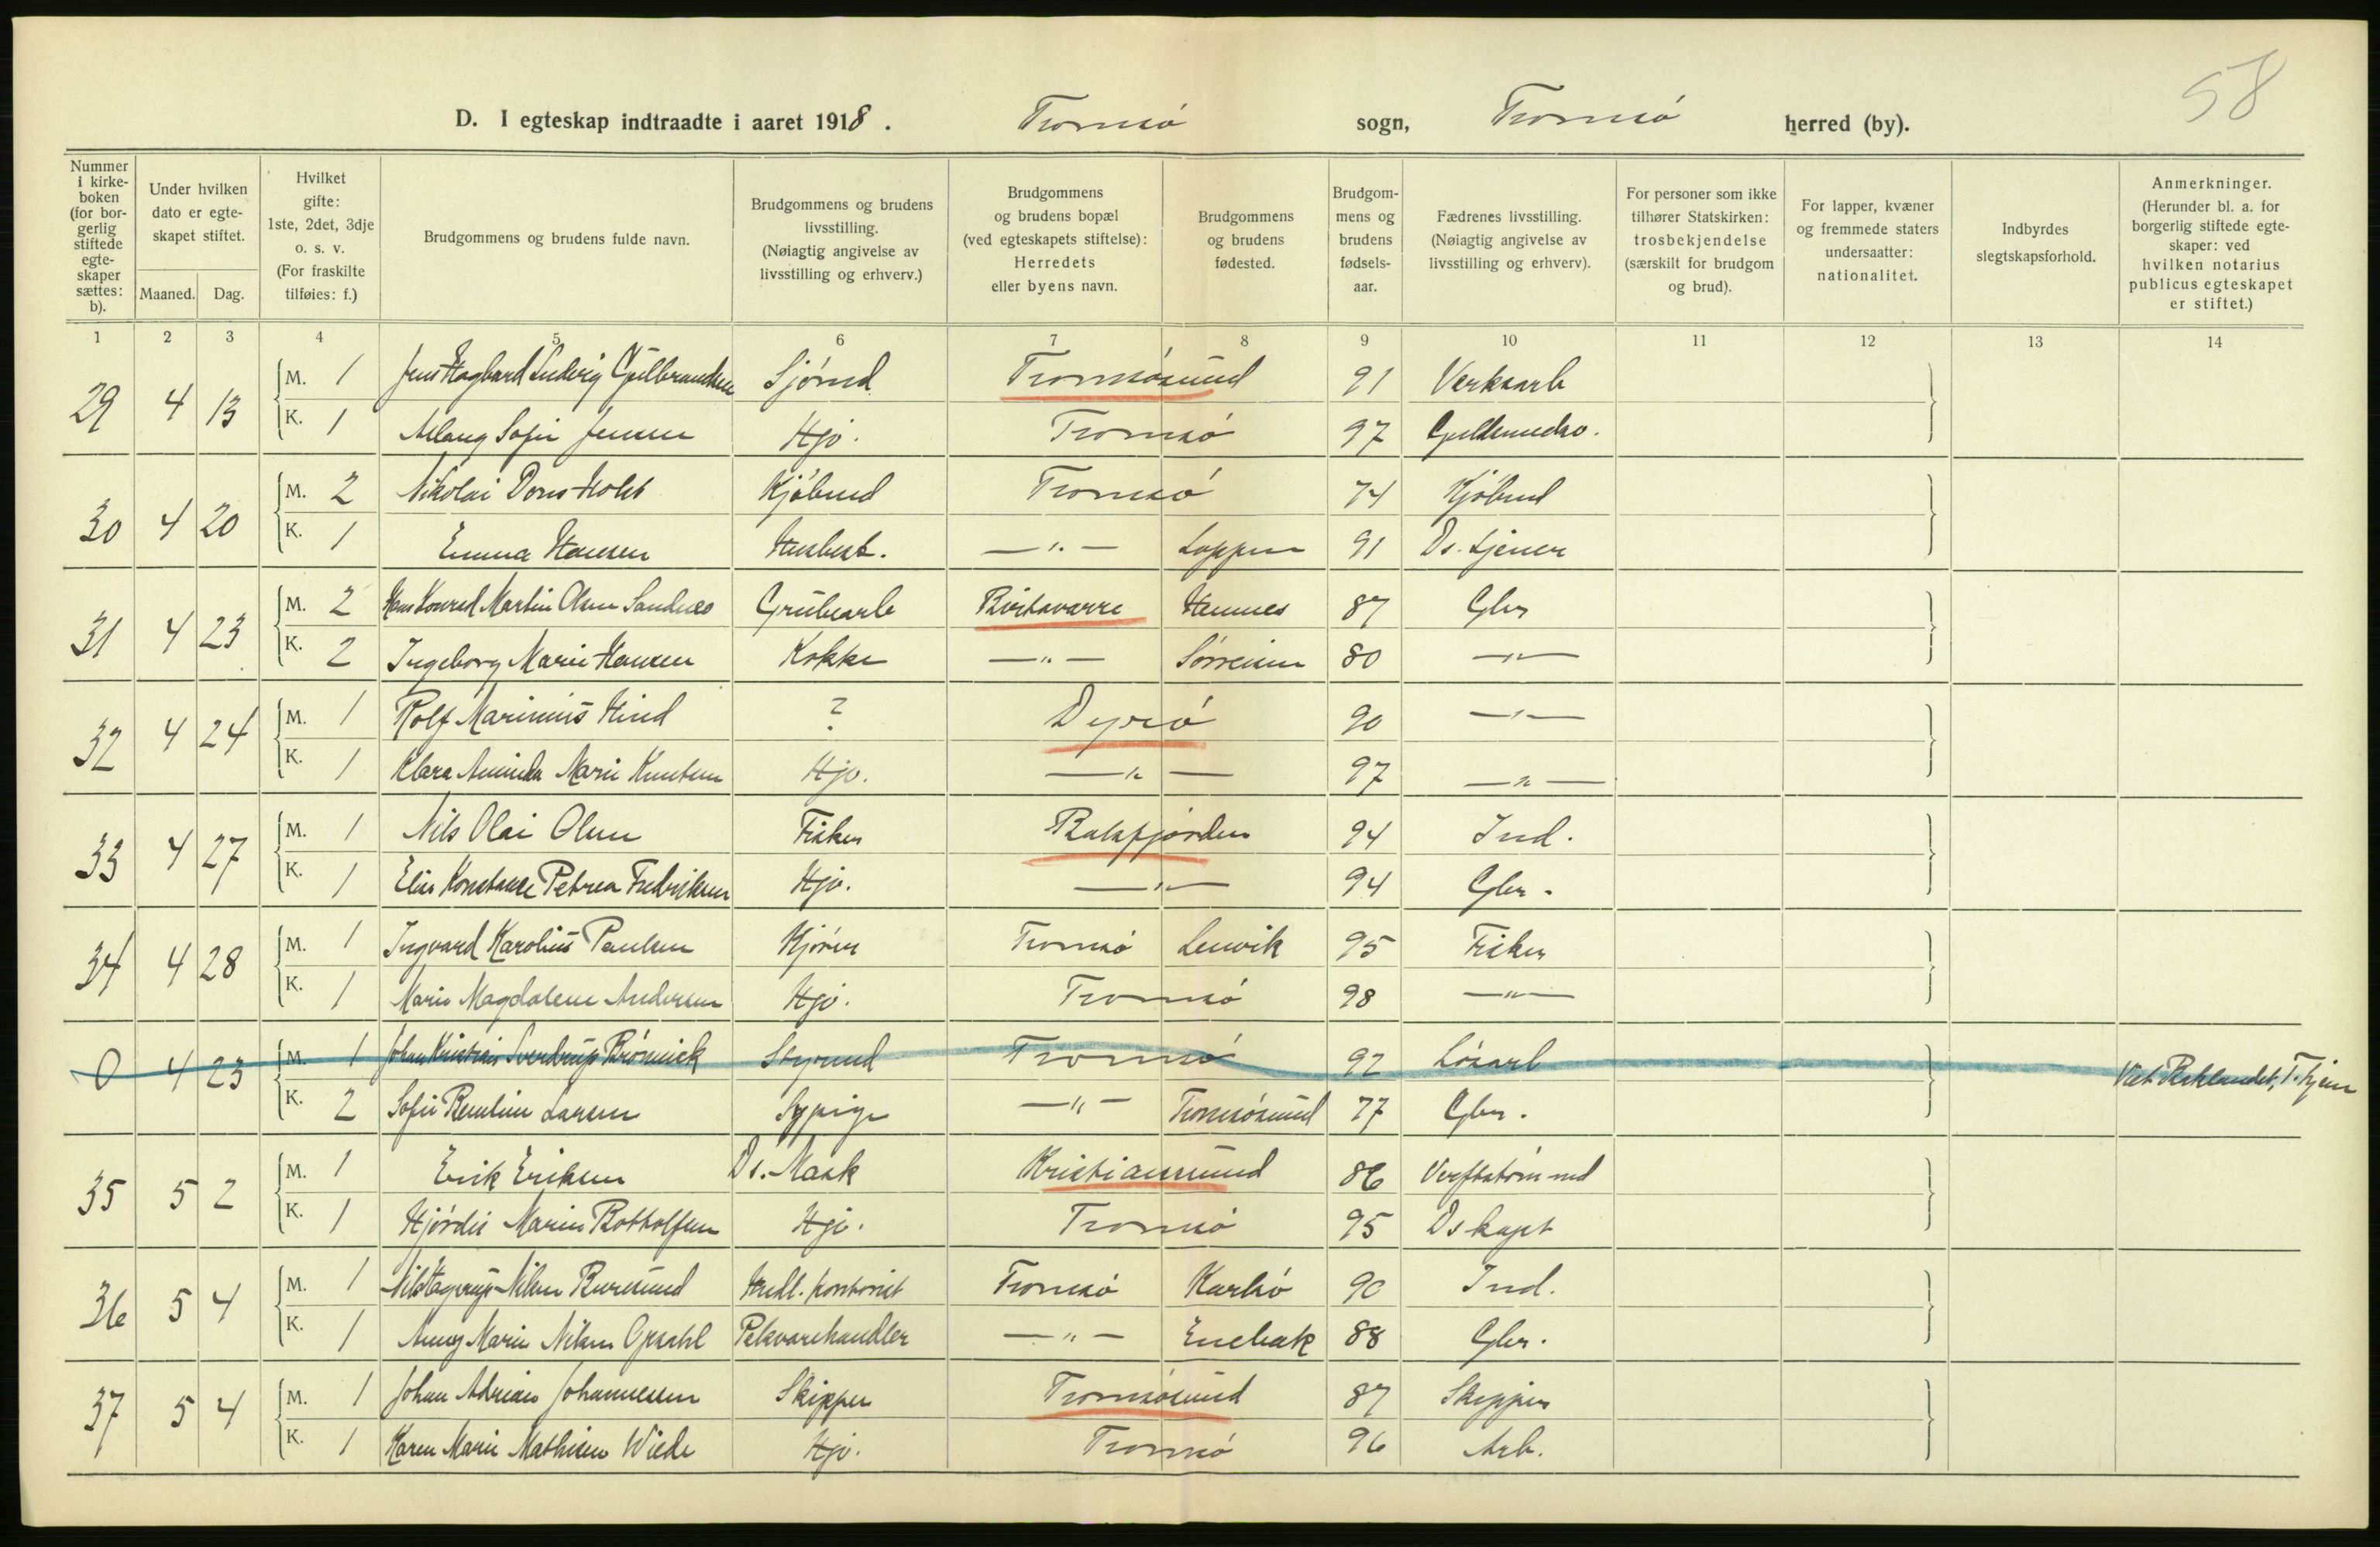 58
D. I egteskap indtraadte i aaret 1918. Tromsö sogn, Tromsö herred (by).
Nummer i kirkeboken (for borgerlig stiftede egteskaper sættes: b).
Under hvilken dato er egteskapet stiftet.
Maaned. Dag.
Hvilket gifte: 1ste, 2det, 3dje o. s. v. (For fraskilte tilføies: f.)
Brudgommens og brudens fulde navn.
Brudgommens og brudens livsstilling. (Nøiagtig angivelse av livsstilling og erhverv.)
Brudgommens og brudens bopæl (ved egteskapets stiftelse): Herredets eller byens navn.
Brudgommens og brudens fødested.
Brudgommens og brudens fødselsaar.
Fædrenes livsstilling. (Nøiagtig angivelse av livsstilling og erhverv).
For personer som ikke tilhører Statskirken: trosbekjendelse (særskilt for brudgom og brud).
For lapper, kvæner og fremmede staters undersaatter: nationalitet.
Indbyrdes slegtskapsforhold.
Anmerkninger. (Herunder bl. a. for borgerlig stiftede egteskaper: ved hvilken notarius publicus egteskapet er stiftet.)
1 2 3 4 5 6 7 8 9 10 11 12 13 14
29 4 13 M. 1 Jens Hagbard Ludvig Gulbrandsen Sjömd Tromsösund 91 Verksarb
K. 1 Aslaug Sofie Jensen Hjv. Tromsö 97 Guldsmedsv.
30 4 20 M. 2 Nikolai Dons Holst Kjöbmd Tromsö 74 Kjöbmd
K. 1 Emma Hansen Husbest. —"— Loppen 91 Ds. tjener
31 4 23 M. 2 Hans Konrad Martin Olsen Sandnes Grubearb Birtavarre Hemnes 87 Gbr
K. 2 Ingeborg Marie Hansen Kokke —"— Sörreisen 80 —"—
32 4 24 M. 1 Rolf Marinius Hind ? Dyrö 90 —"—
K. 1 Klara Marie Knutsen Hjv. —"— 97 —"—
33 4 27 M. 1 Nils Olai Olsen Fisker Balsfjorden 94 Ind.
K. 1 Elise Konstanse Petrea Fredriksen Hjv. —"— 94 Gbr.
34 4 28 M. 1 Ingvard Karolius Paulsen Kjörer Tromsö Lenvik 95 Fisker
K. 1 Marie Magdalene Andersen Hjv. Tromsö 98 —"—
0 4 23 M. 1 Johan Kristian Sverdrup Brönnick Styrmd Tromsö 92 Lösarb T.hjem
K. 2 Sofie Larsen Sypige —"— Tromsösund 77 Gbr.
35 5 2 M. 1 Erik Eriksen Ds. Mask Kristiansund 86
K. 1 Hjördis Marie Botholfsen Hjv. Tromsö 95 Dskapt
36 5 4 M. 1 Nils Hagerup Nilsen Buresund Hndl. kontorist Tromsö Karlsö 90 Ind.
K. 1 Anny Marie Nilsen Opsahl Pelsvarehandler —"— Enebak 88 Gbr.
37 5 4 M. 1 Johan Adrian Johannessen Skipper Tromsösund 87 Skipper
K. 1 Karen Marie Mathisen Wiede Hjv. Tromsö 96 Arb.